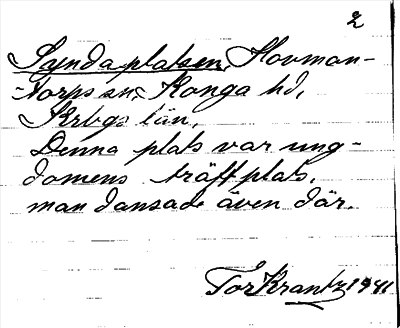 2
Syndaplatsen, Hovman-
-torps sn, Konga hd,
Krbgs län.
Denna plats var ung-
domens träffplats.
man dansade även där.
Tor Krantz 1941